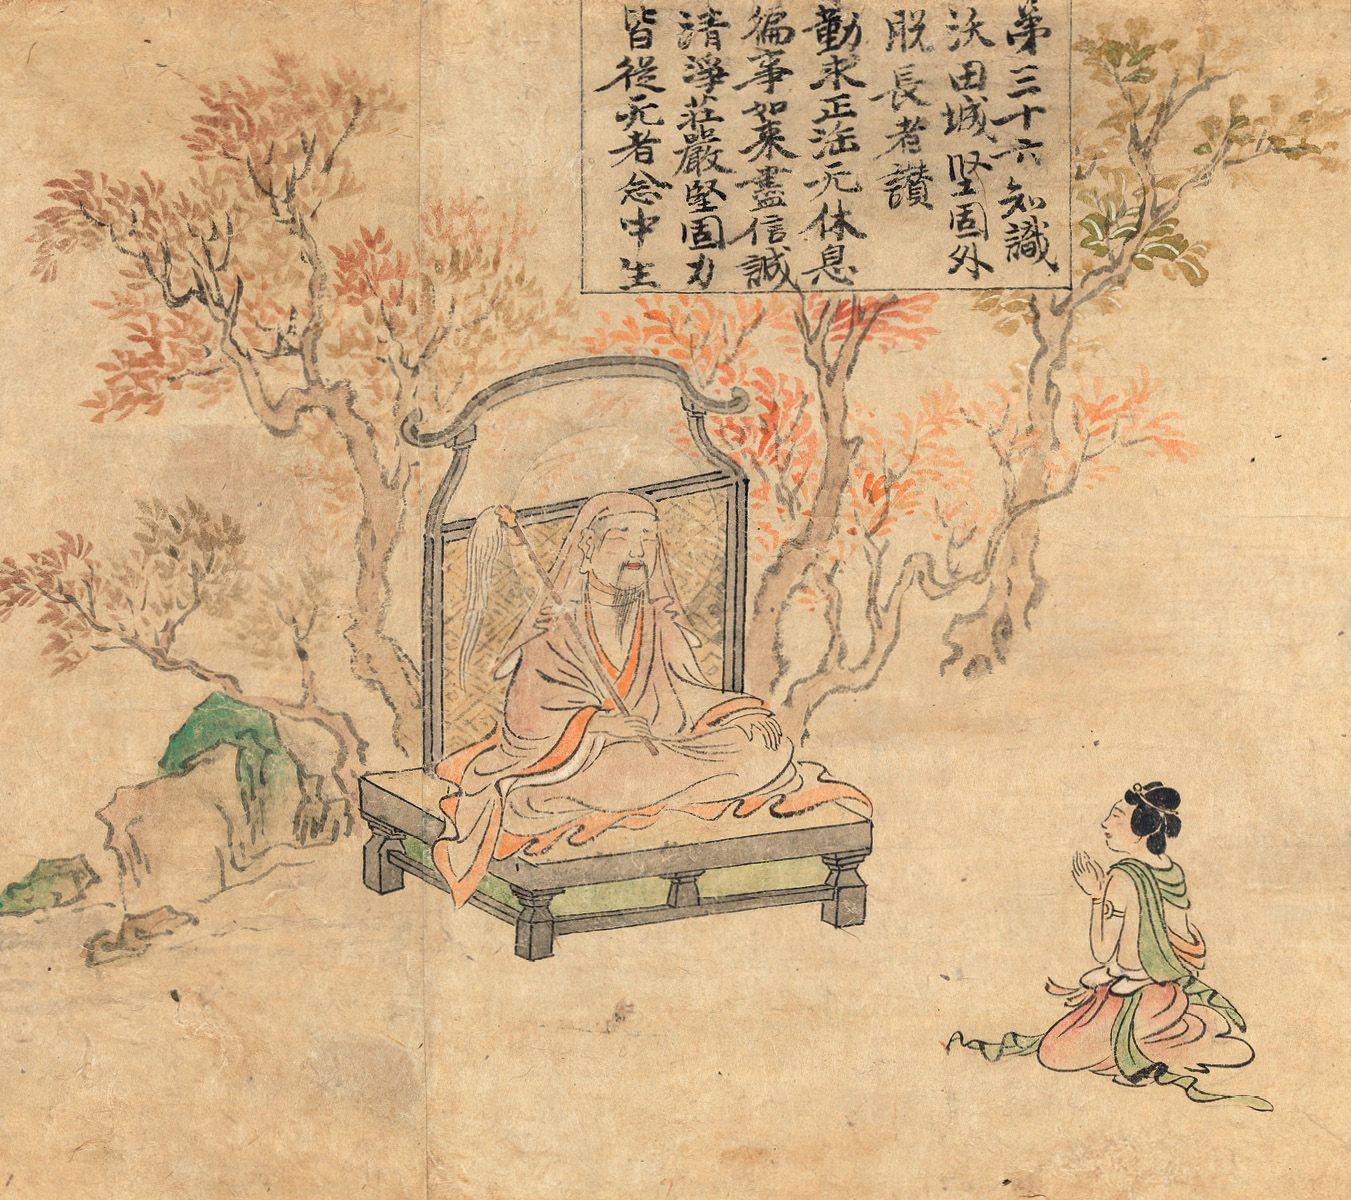 第三十六知識
沃田城坚固外
脱長者讃
勤求正法元休息
徧事如来盡信誠
清淨莊嚴堅固力
皆従元者念中生